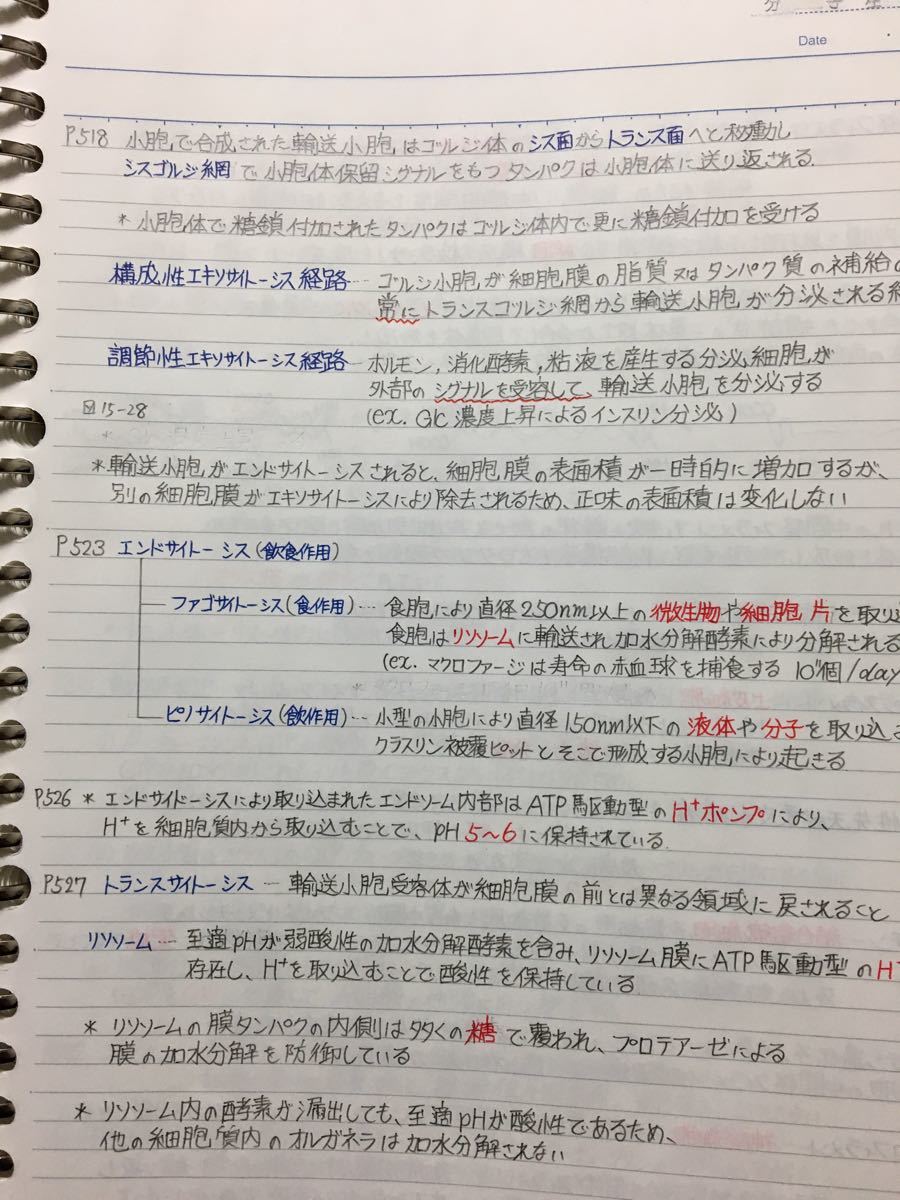 Date
P518 小胞で合成された輸送小胞はゴルジ体のシス面からトランス面へと移動し
シスゴルジ網で小胞体保留シグナルをもつタンパクは小胞体に送り返される.
* 小胞体で糖鎖付加されたタンパクはゴルジ体内で更に糖鎖付加を受ける
構成性エキソサイトーシス経路… ゴルジ小胞が細胞膜の脂質又はタンパク質の補給の
常にトランスゴルジ網から輸送小胞が分泌される
調節性エキソサイトーシス経路… ホルモン,消化酵素,粘液を産生する分泌細胞が
外部のシグナルを受容して、輸送小胞を分泌する
図15-28
(ex. Glc濃度上昇によるインスリン分泌)
*輸送小胞がエンドサイトーシスされると、細胞膜の表面積が一時的に増加するが、
別の細胞膜がエキソサイトーシスにより除去されるため、正味の表面積は変化しない
P523 エンドサイトーシス(飲食作用)
ファゴサイトーシス(食作用)… 食胞により直径250nm以上の微生物や細胞片を取り込
食胞はリソソームに輸送され加水分解酵素により分解される
(ex. マクロファージは寿命の赤血球を捕食する 10¹¹個/day
ピノサイトーシス(飲作用)… 小型の小胞により直径150nm以下の液体や分子を取り込
クラスリン被覆ピットとそこで形成する小胞により起きる.
P526 * エンドサイドーシスにより取り込まれたエンドソーム内部はATP駆動型のH⁺ポンプにより、
H⁺を細胞質内から取り込むことで、pH 5~6に保持されている.
P527 トランスサイトーシス … 輸送小胞受容体が細胞膜の前とは異なる領域に戻されること
リソソーム… 至適pHが弱酸性の加水分解酵素を含み、リソソーム膜にATP駆動型のH⁺
存在し、H⁺を取り込むことで酸性を保持している.
* リソソームの膜タンパクの内側は多くの糖で覆われ、プロテアーゼによる
膜の加水分解を防御している
* リソソーム内の酵素が漏出しても、至適pHが酸性であるため、
他の細胞質内のオルガネラは加水分解されない